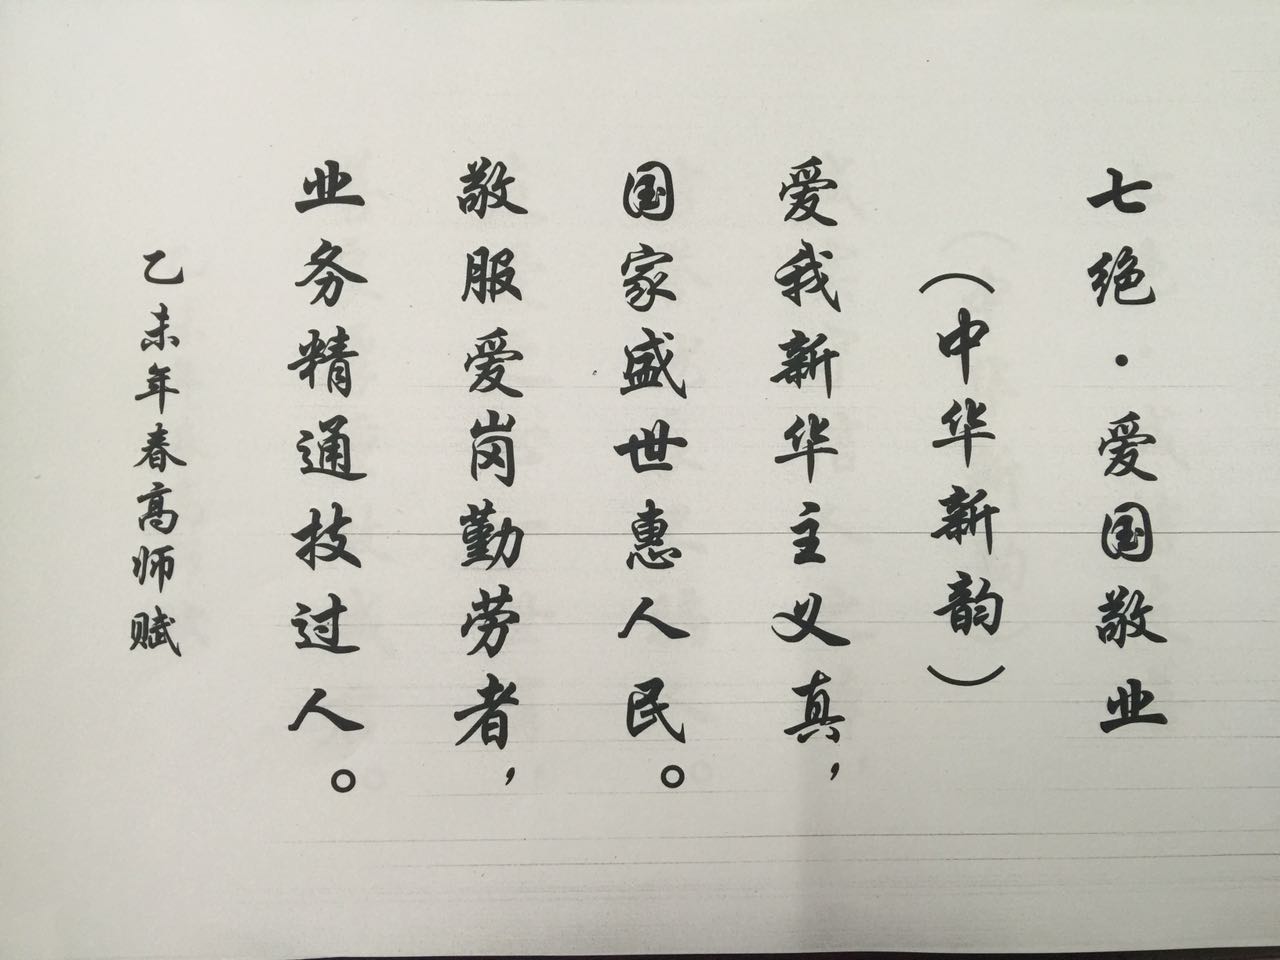 七绝·爱国敬业
（中华新韵）
爱我新华主义真，
国家盛世惠人民。
敬服爱岗勤劳者，
业务精通技过人。
乙未年春高师赋